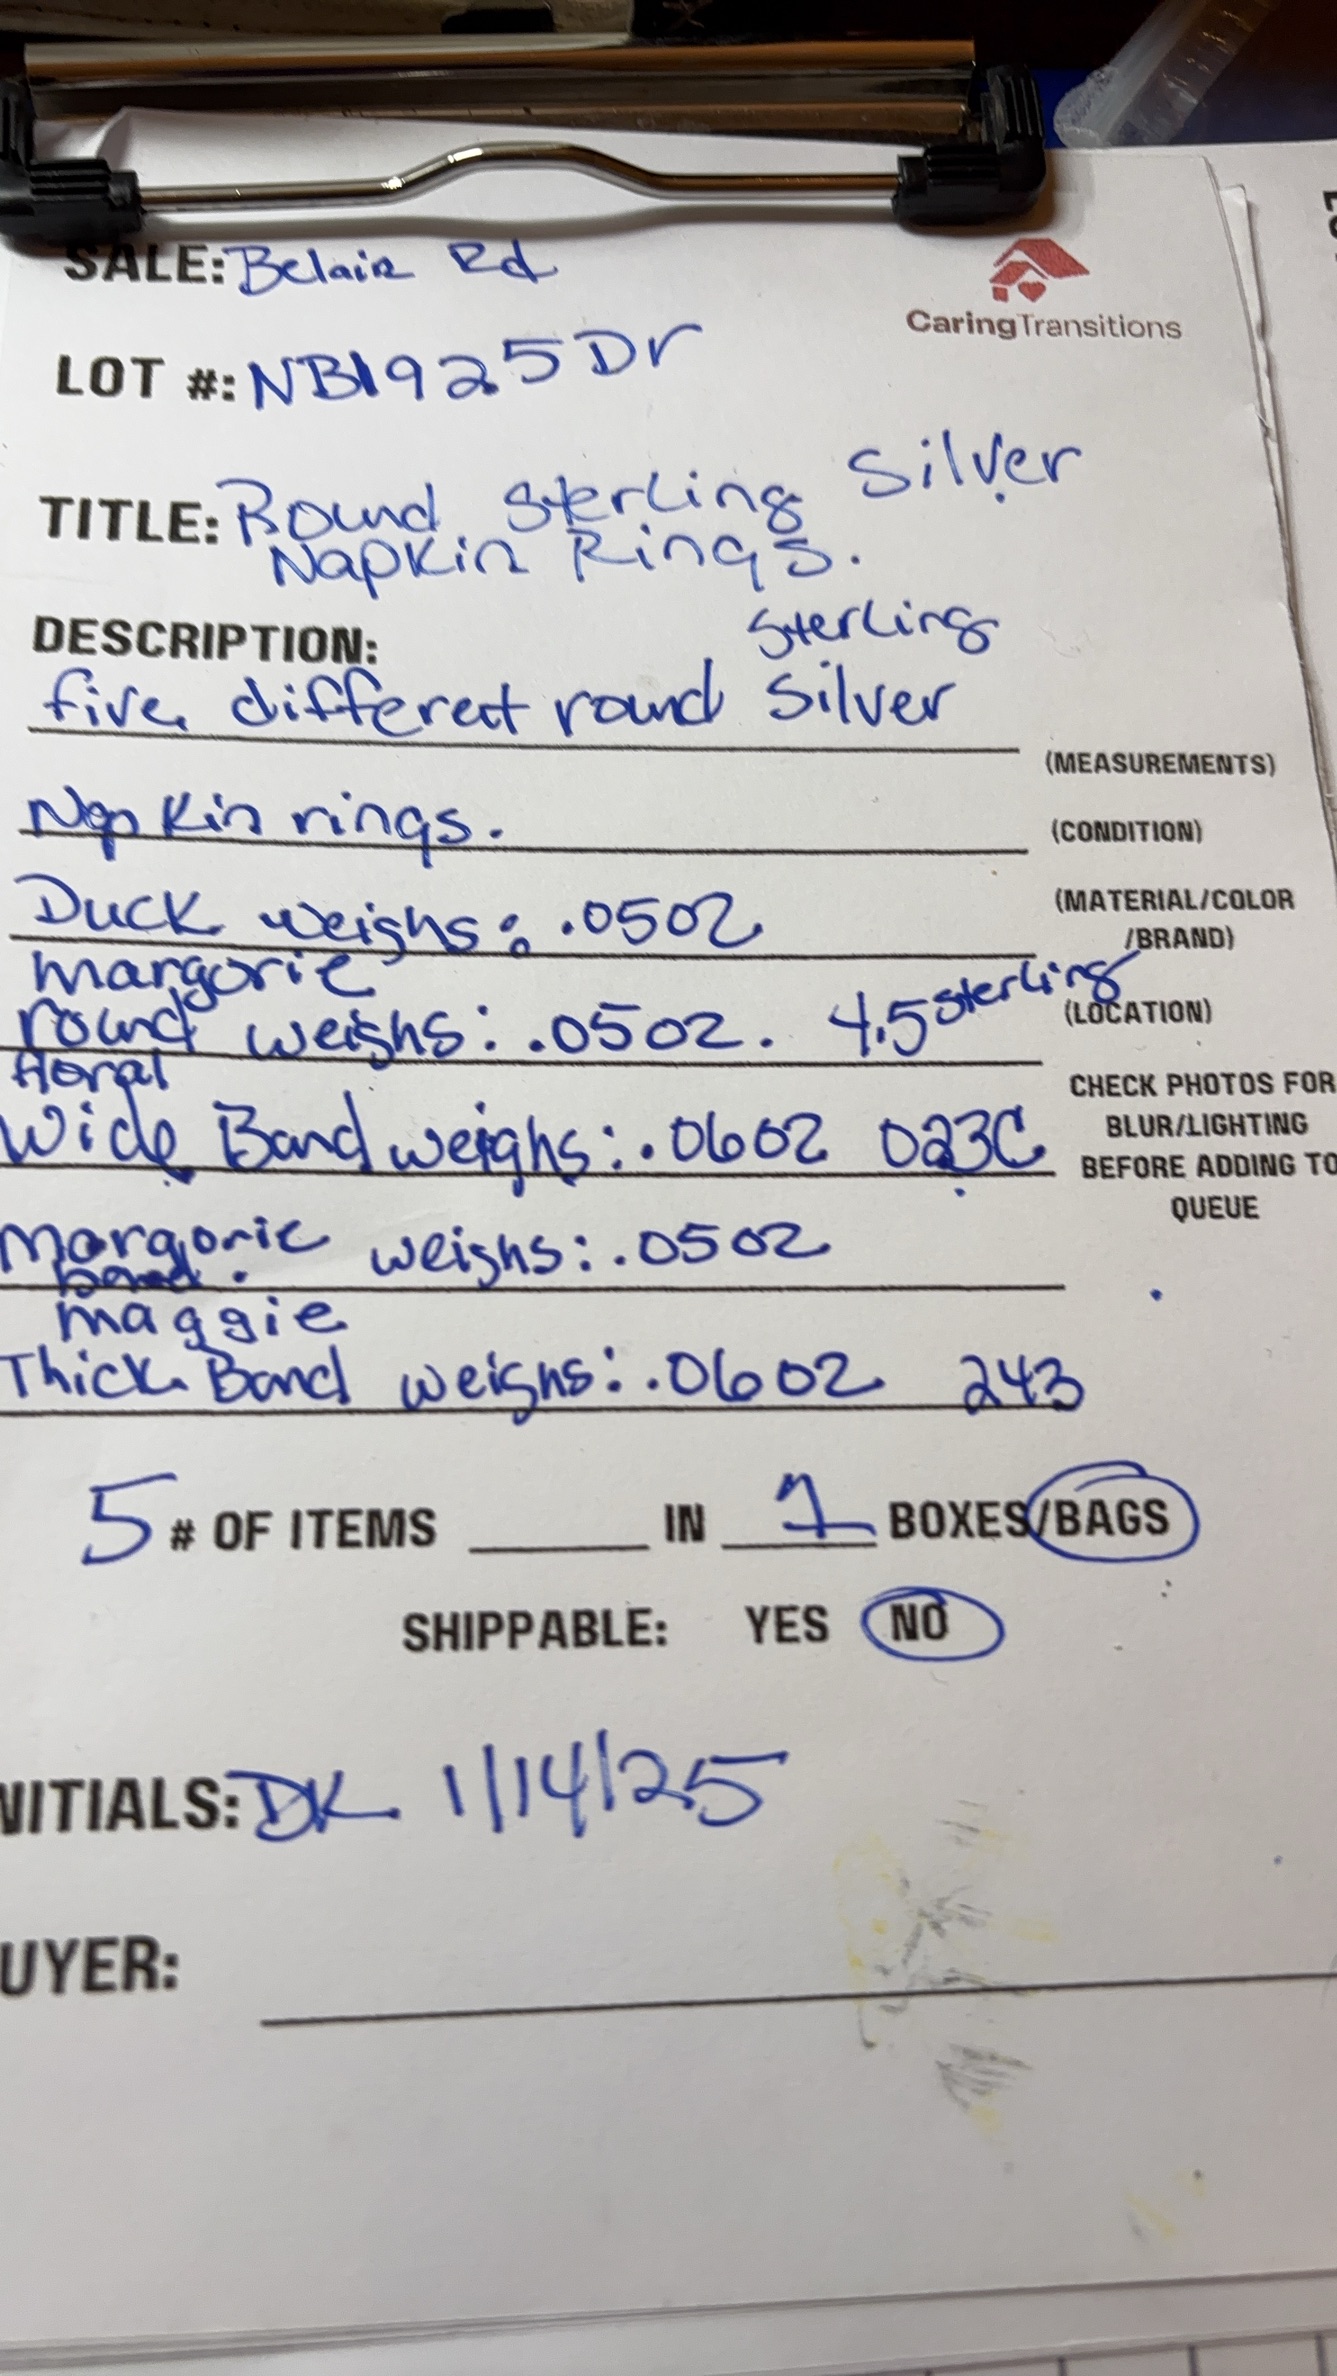 SALE: Belair Rd
CaringTransitions
LOT #: NB1925Dr
TITLE: Round Sterling Silver
Napkin Rings.
DESCRIPTION:
Sterling
five different round Silver
(MEASUREMENTS)
Napkin rings.
(CONDITION)
Duck weighs: .05oz
(MATERIAL/COLOR
/BRAND)
margorie
round weighs: .05oz. 4.5 sterling
(LOCATION)
floral
Wide Band weighs: .06oz 023C
CHECK PHOTOS FOR
BLUR/LIGHTING
BEFORE ADDING TO
QUEUE
margorie weighs: .05oz
band.
maggie
Thick Band weighs: .06oz 243
5 # OF ITEMS IN 1 BOXES/BAGS
SHIPPABLE: YES NO
NITIALS: DK 1/14/25
UYER: